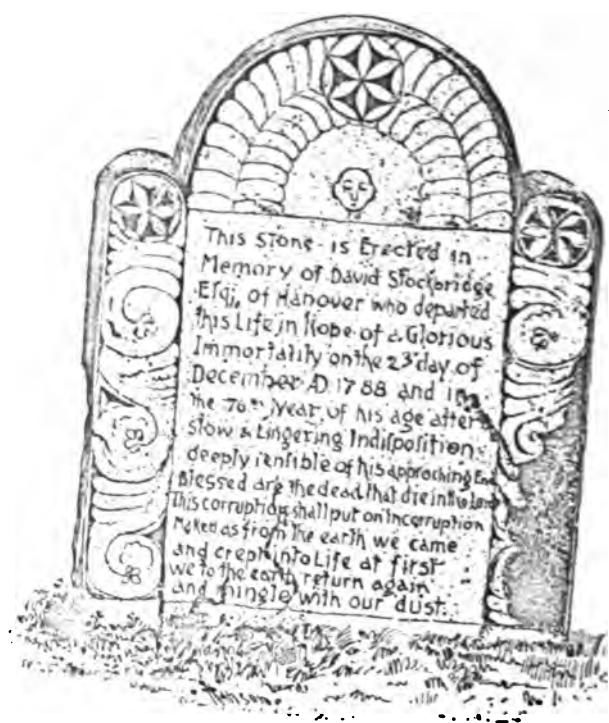 This Stone is Erected in
Memory of David Stockbridge
Esqr, of Hanover who departed
this Life in Hope of a Glorious
Immortality on the 23d day of
December AD 1788 and in
the 76th Year of his age after a
slow & Lingering Indisposition
deeply sensible of his approching End
Blessed are the dead that die in the Lord
This corruption shall put on Incorruption
Naked as from the earth we came
and crept into Life at first
we to the earth return again
and mingle with our dust.